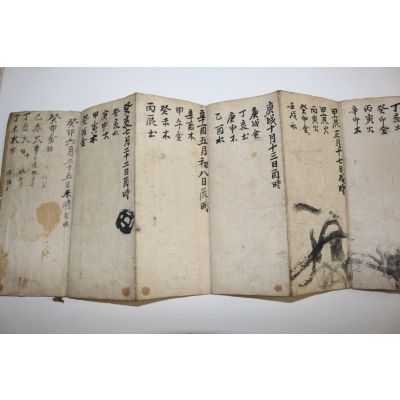 丁亥土
癸卯金
丙寅火
辛卯木
甲辰三月十七日戌時
甲寅火
丙寅火
癸卯金
壬戌水
庚戌十月十三日酉時
庚戌金
丁亥土
庚申木
乙酉水
辛酉五月初八日辰時
辛酉木
甲午金
癸未木
丙辰土
癸亥七月二十二日酉時
癸亥水
庚申木
甲寅水
癸酉金
癸卯六月二十五日未時
癸卯金
己未火
丁酉火
丁未水